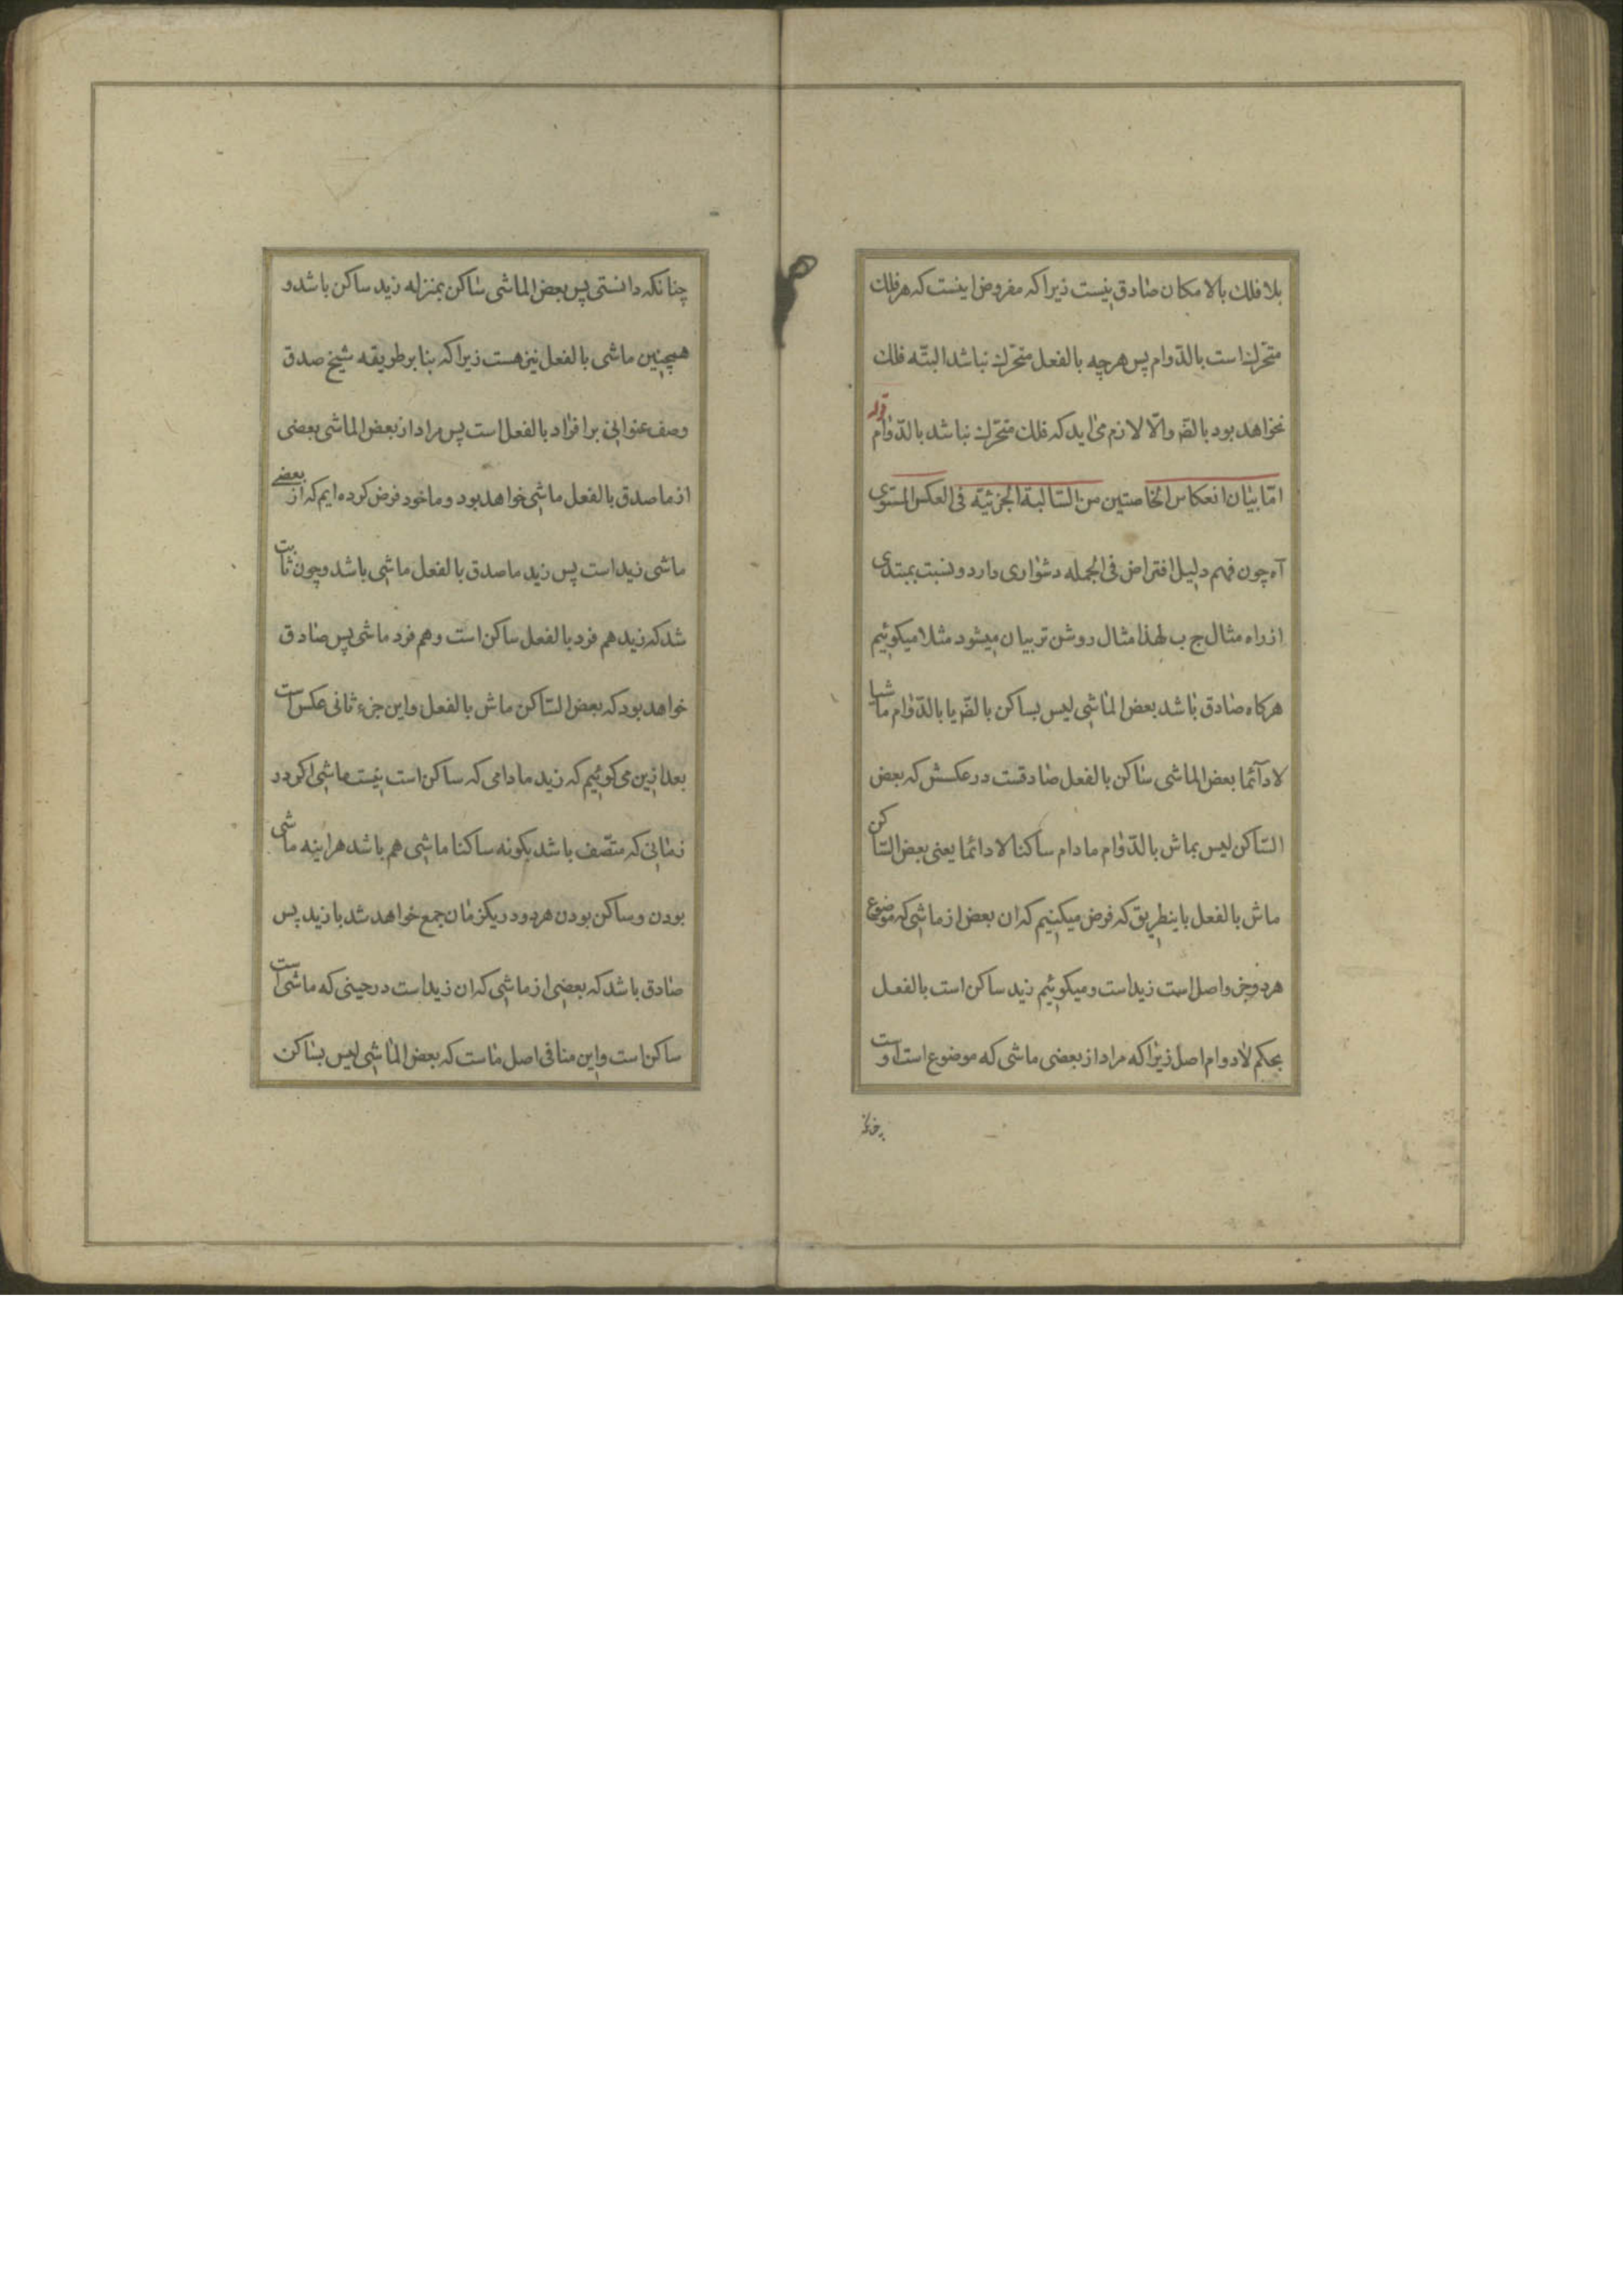 بلا فلك بالامكان صادق نیست زیرا که مفروض اینست که هر فلك
متحرّك است بالدّوام پس هر چه بالفعل متحرّك نباشد البتّه فلك
نخواهد بود بالضّر والّا لازم می اید که فلك متحرّك نباشد بالدّوام قوله
امّا بیان انعکاس الخاصتین من السّالبة الجزئیّة فی العکس المستوی
آه چون فهم دلیل افتراض فی الجمله دشواری دارد و نسبت بمبتدی
از راه مثال ج ب لهذا مثال روشن تر بیان میشود مثلا میکوئیم
هرکاه صادق باشد بعض الماشی لیس بساکن بالضّر یا بالدّوام ماشیا
لادآئما بعض الماشی ساکن بالفعل صادقست در عکسش که بعض
السّاکن لیس بماش بالدّوام مادام ساکنا لادائما یعنی بعض السّاکن
ماش بالفعل باینطریق که فرض میکنیم که ان بعض از ماشی که موضوع
هر دو جزو اصل است زید است و میکوئیم زید ساکن است بالفعل
بحکم لادوام اصل زیرا که مراد از بعضی ماشی که موضوع است اوست
چنانکه دانستی پس بعض الماشی ساکن بمنزله زید ساکن باشد و
همچنین ماشی بالفعل نیز هست زیرا که بنا بر طریقه شیخ صدق
وصف عنوانی بر افراد بالفعل است پس مراد از بعض الماشی بعضی
از ماصدق بالفعل ماشی خواهد بود و ما خود فرض کرده ایم که از بعضے
ماشی زید است پس زید ماصدق بالفعل ماشی باشد و چون ثابت
شد که زید هم فرد بالفعل ساکن است و هم فرد ماشی پس صادق
خواهد بود که بعض السّاکن ماش بالفعل و این جزء ثانی عکس است
بعد ازین می کوئیم که زید مادامی که ساکن است نیست ماشی اکر در
زمانی که متّصف باشد بکونه ساکنا ماشی هم باشد هراینه ماشی
بودن و ساکن بودن هر دو در یکزمان جمع خواهد شد با زید پس
صادق باشد که بعضی از ماشی که ان زید است در حینی که ماشی است
ساکن است و این منافی اصل ماست که بعض الماشی لیس بساکن